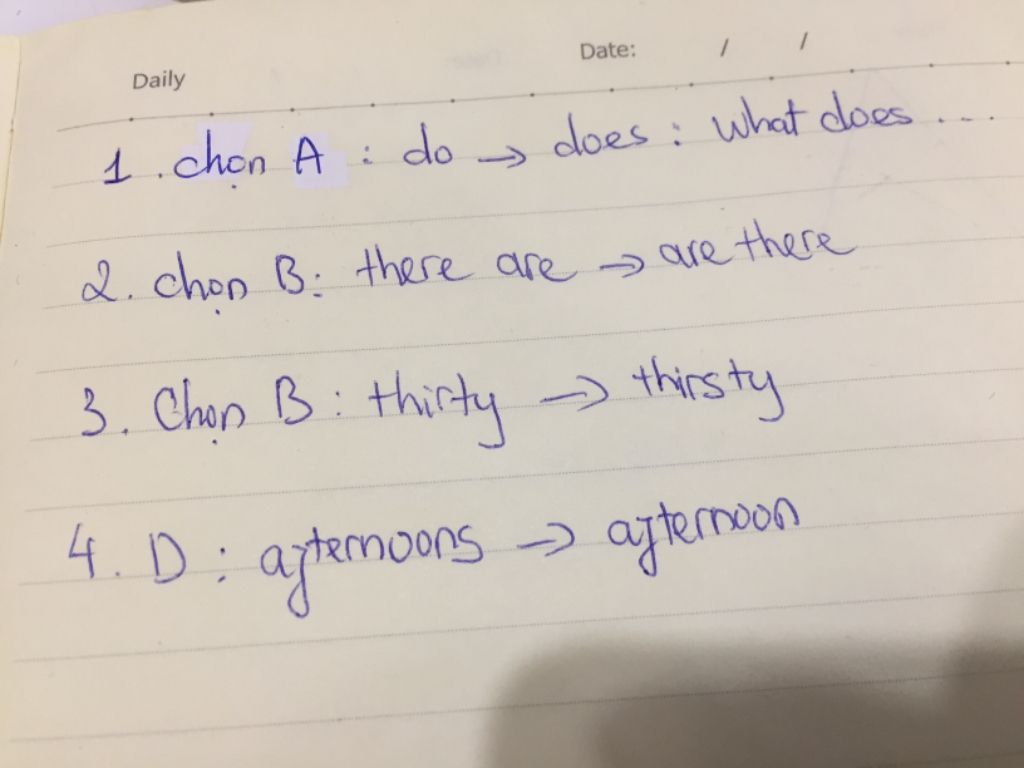 Daily Date: / /
1. chọn A : do → does : What does ...
2. chọn B: there are → are there
3. Chọn B : thirty → thirsty
4. D : afternoons → afternoon